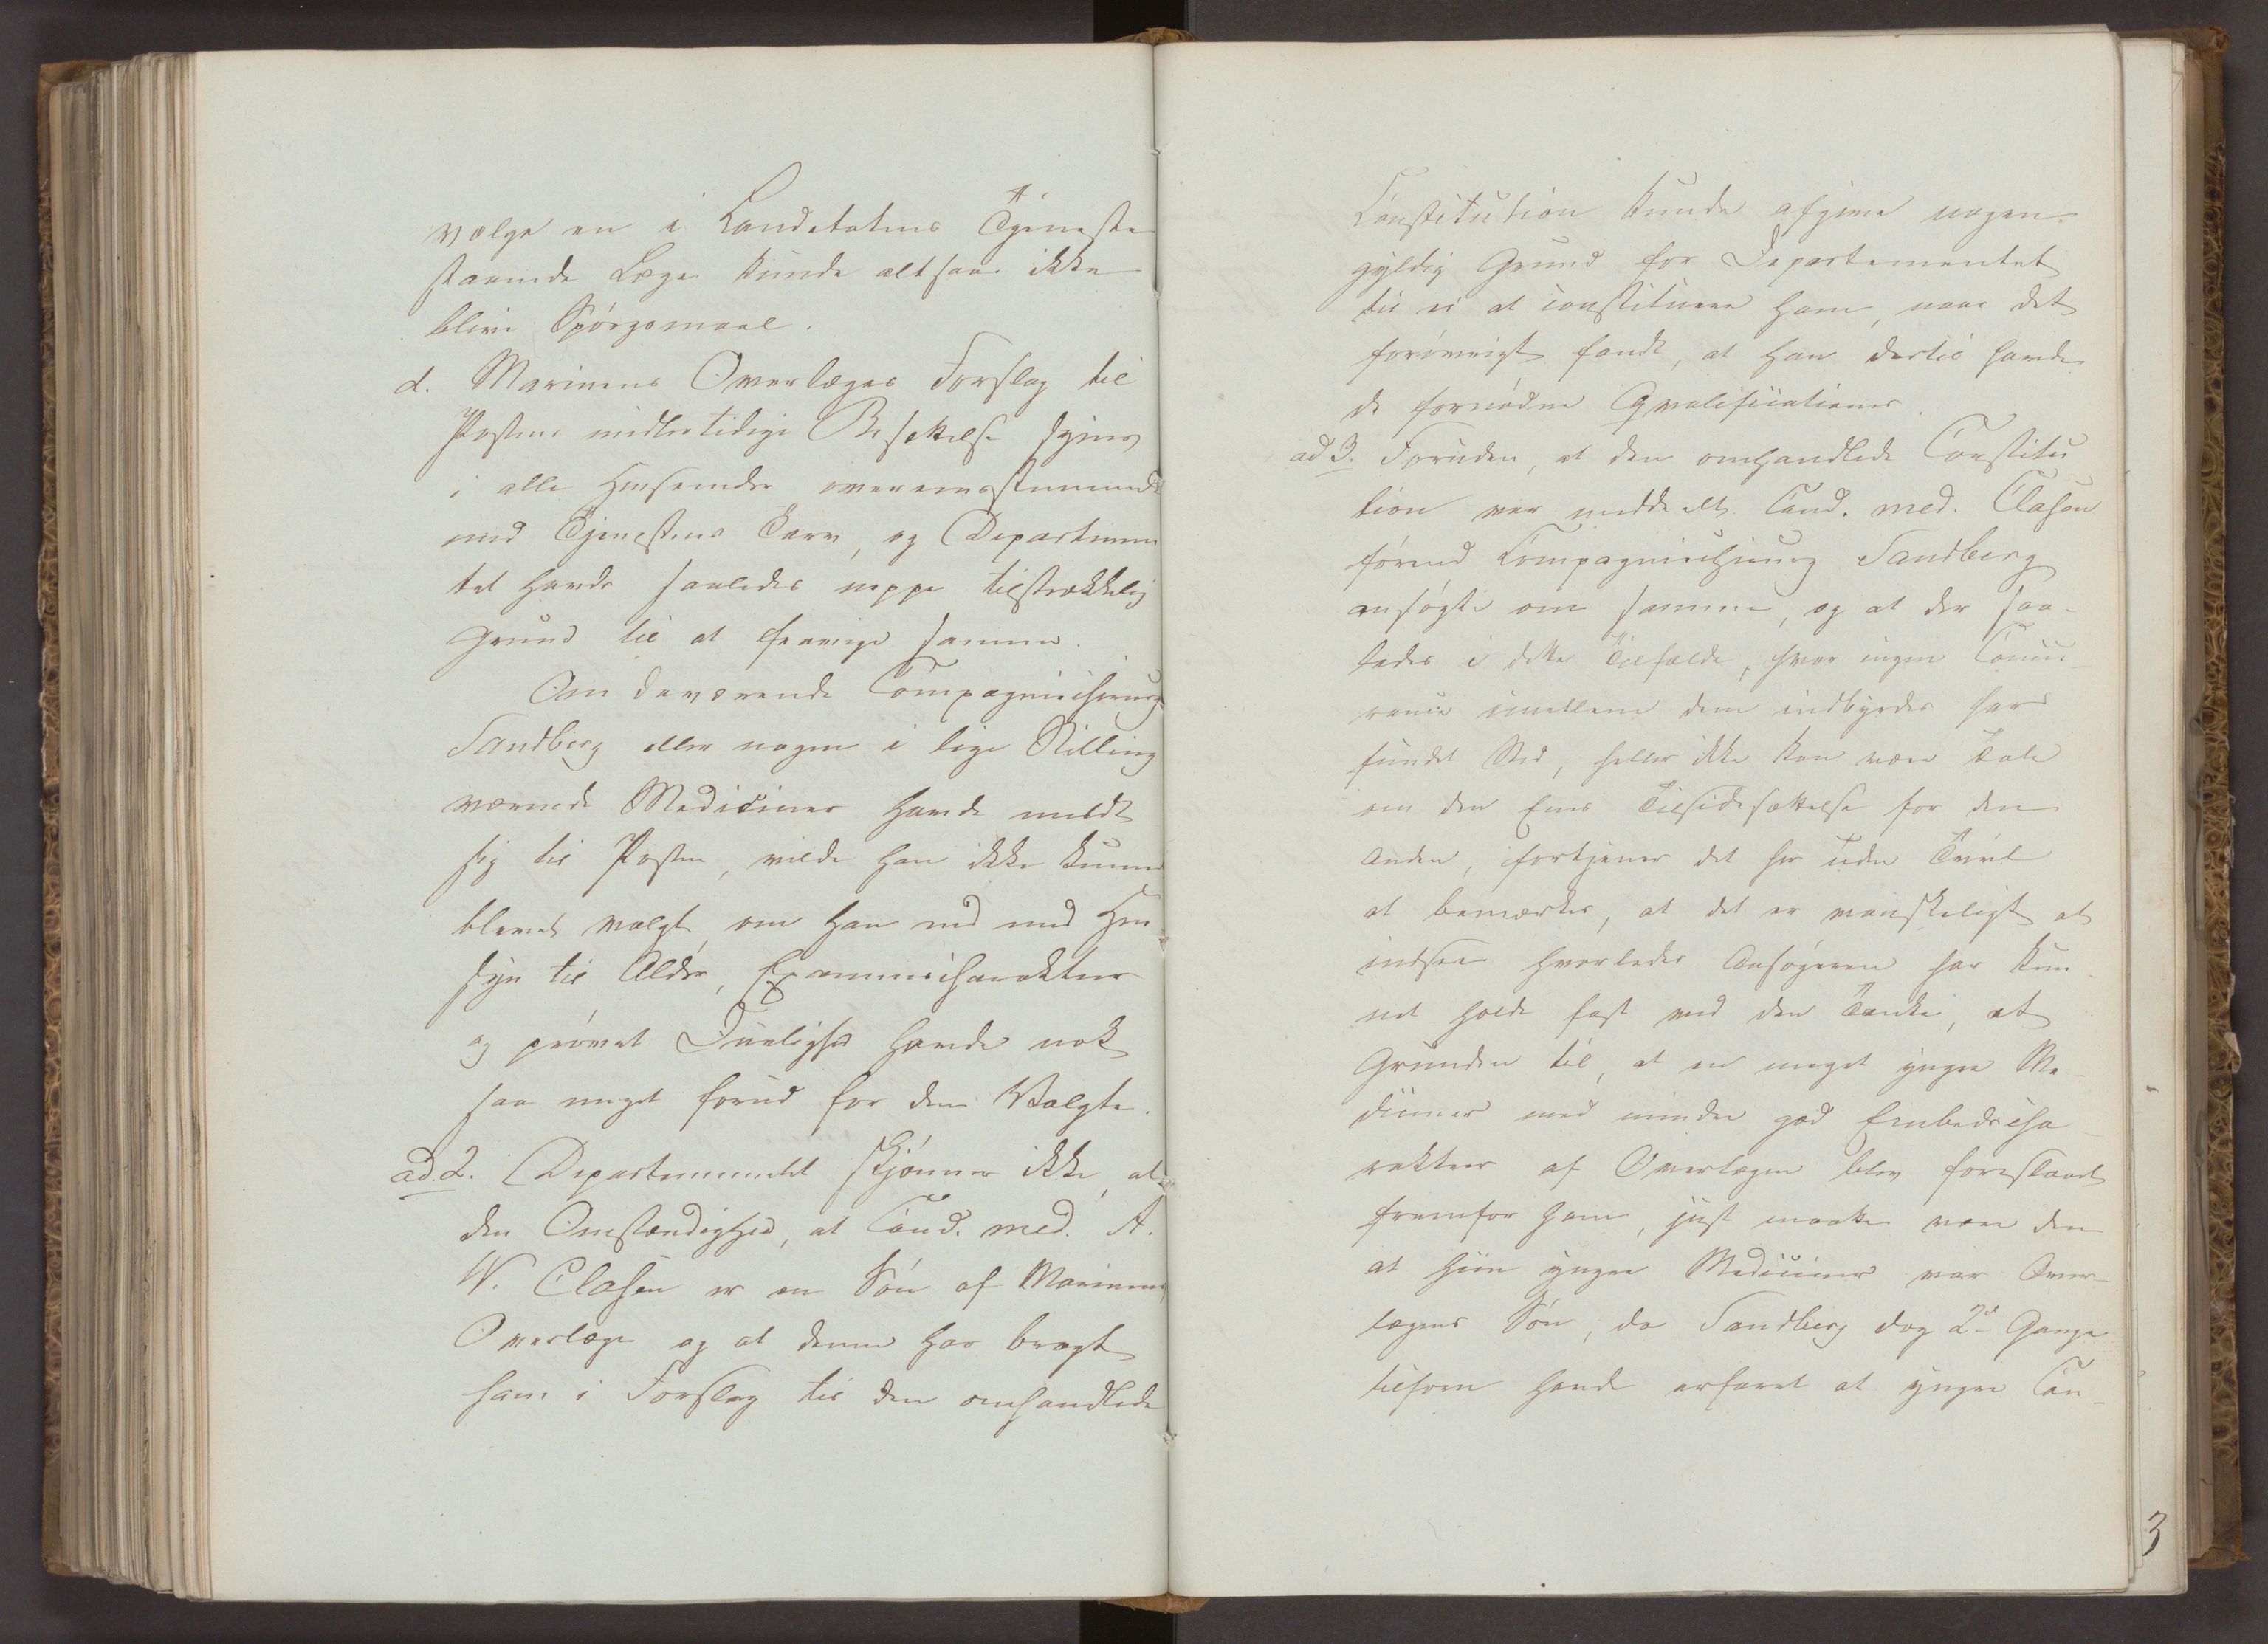 vælge en i Landetatens Tjeneste
staaende Læge kunde altsaa ikke
blive Spörgsmaal.
d. Marinens Overlæges Forslag til
Postens midlertidige Besættelse synes
i alle Henseender overeensstemmende
med Tjenestens Tarv, og Departemen
tet havde saaledes neppe tilstrækkelig
Grund til at fravige samme.
Om daværende Compagniechirurg
Sandberg eller nogen i lige Stilling
værende Mediciner havde meldt
sig til Posten, vilde han ikke kunne
blevet valgt, om han end med Hen
syn til Alder, Examenscharakteer
og prövet Duelighed havde nok
saa meget forud for den Valgte.
ad. 2. Departementet skjönner ikke, at
den Omstændighed, at Cand. med. A.
W. Clasen er en Sön af Marinens
Overlæge og at denne har bragt
ham i Forslag til den omhandlede
Constitution kunde afgive nogen
gyldig Grund for Departementet
til ei at constituere ham, naar det
forövrigt fandt, at han dertil havde
de fornödne Qvalificationer.
ad 3. Foruden, at den omhandlede Constitu
tion var meddeelt Cand. med. Clasen
förend Compagniechirurg Sandberg
ansögte om samme, og at der saa-
ledes i dette Tilfælde, hvor ingen Concur-
rence imellem dem indbyrdes har
fundet Sted, heller ikke kan være Tale
om den Enes Tilsidesættelse for den
Anden, fortjener det her uden Tvivl
at bemærkes, at det er vanskeligt at
indsee hvorledes Ansögeren har kun-
net holde fast ved den Tanke, at
Grunden til, at en meget yngre Me-
diciner med mindre god Embedscha-
rakteer af Overlægen blev foreslaaet
fremfor ham, just maatte være den
at hiin yngre Mediciner var Over-
lægens Sön, da Sandberg dog 2de Gange
tilforn havde erfaret at yngre Can-
3